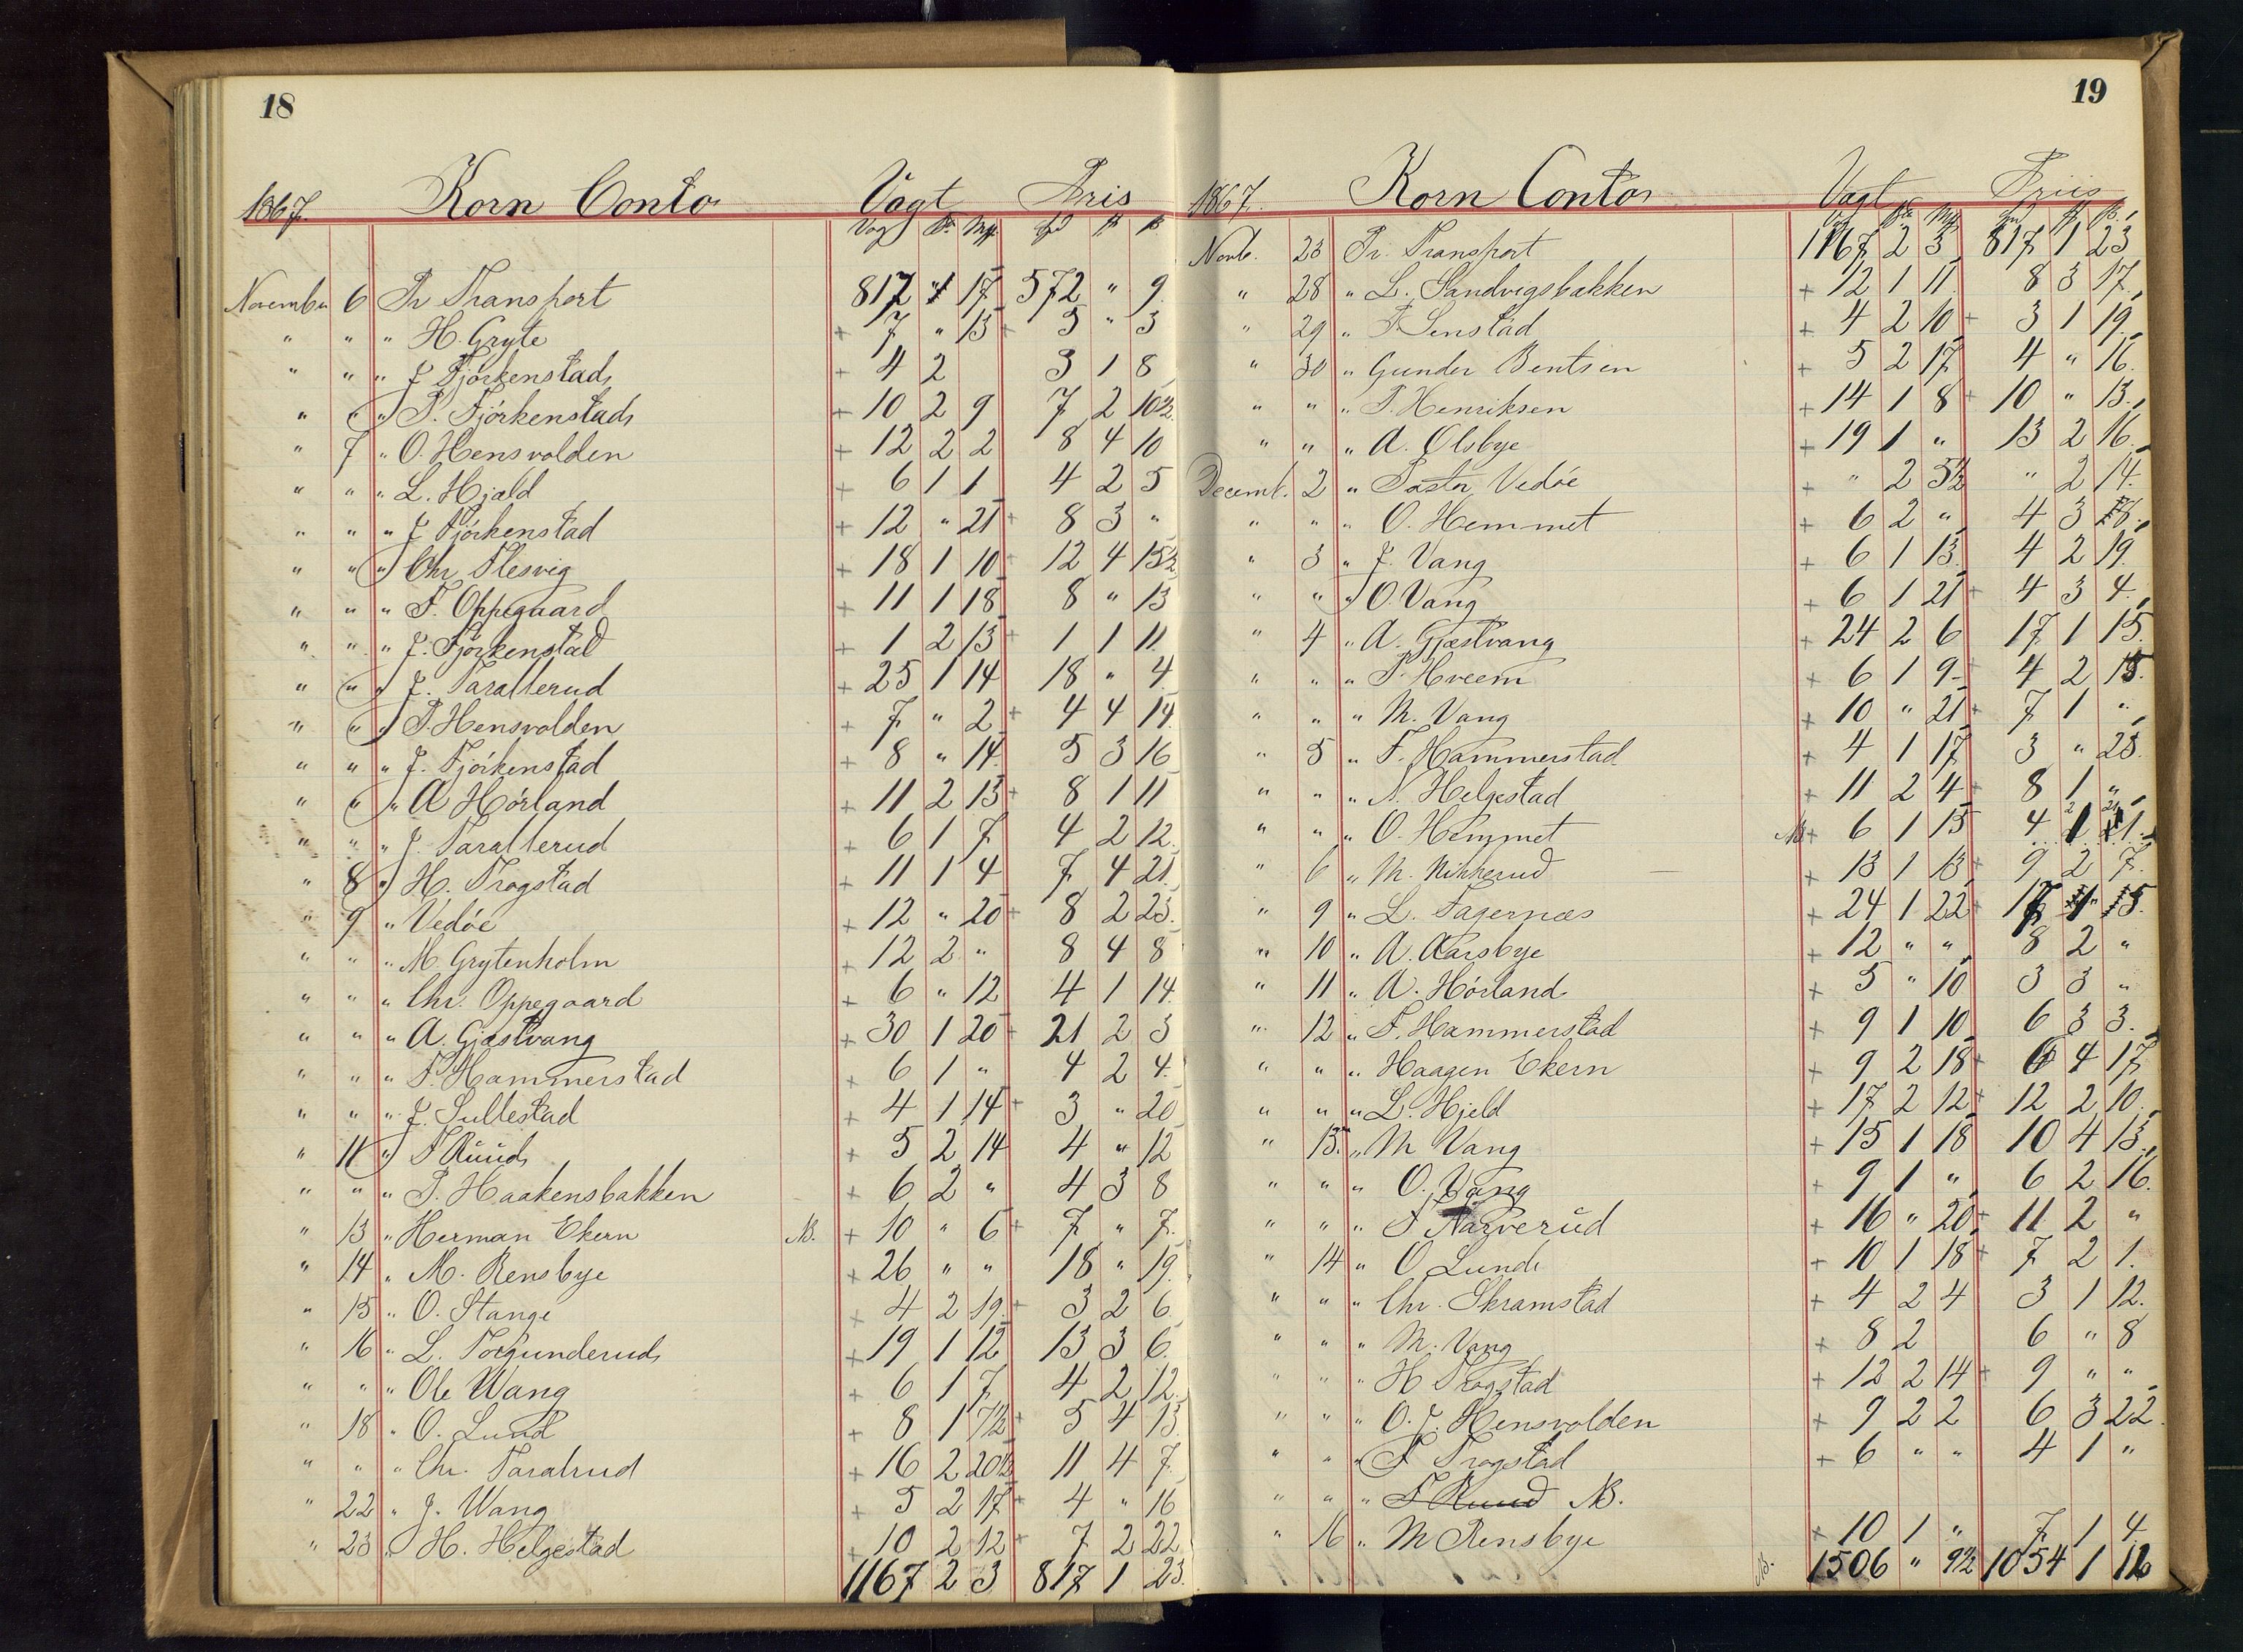 18
1867. Korn Conto Vægt Pris
Vog Mk
November 6 Pr Transport 817 " 17 572 " 9
" " " H. Gryte + 7 " 13 + 5 " 3
" " " J Fjörkenstad + 4 2 3 1 8
" " " P. Fjörkenstad + 10 2 9 7 2 10½
" 7 " O. Hensvolden + 12 2 2 8 4 10
" " " L. Hjæld + 6 1 1 4 2 5
" " " J Fjörkenstad + 12 " 21 + 8 3 "
" " " Chr Flesvig + 18 1 10 + 12 4 15½
" " " F. Oppegaard + 11 1 18 8 " 13
" " " J. Fjörkenstad + 1 2 13 + 1 1 11
" " " J. Taralterud + 25 1 14 18 " 4
" " " P. Hensvolden + 7 " 2 + 4 4 14
" " " J. Fjörkenstad + 8 " 14 5 3 16
" " " A Hörland + 11 2 13 + 8 1 11
" " " J. Taralterud + 6 1 7 4 2 12
" 8 " H. Trogstad + 11 1 4 7 4 21
" 9 " Vedöe + 12 " 20 + 8 2 23
" " " M. Grytenholm + 12 2 " 8 4 8
" " " Chr. Oppegaard + 6 " 12 4 1 14
" " " A. Gjæstvang + 30 1 20 + 21 2 3
" " " F. Hammerstad + 6 1 " 4 2 4
" " " J. Sullestad + 4 1 14 + 3 " 20
" 11 " T Ruud + 5 2 14 4 " 12
" " " P. Haakensbakken + 6 2 " 4 3 8
" 13 " Herman Ekern NB. + 10 " 6 + 7 " 7
" 14 " M. Rensbye + 26 " " 18 " 19
" 15 " O. Stange + 4 2 19 + 3 2 6
" 16 " L. Torgunderud + 19 1 12 13 3 6
" " " Ole Wang + 6 1 7 4 2 12
" 18 " O. Lund + 8 1 7½ + 5 4 13
" " " Chr. Taralrud + 16 2 20½ 11 4 7
" 22 " J. Wang + 5 2 17 + 4 " 16
" 23 " H. Helgestad + 10 2 12 + 7 2 22
1167 2 3 817 1 23
19
1867. Korn Conto Vægt Priis
Novb. 23 Pr. Transport 1167 2 3 817 1 23
" 28 " L. Sandvigsbakken + 12 1 11 8 3 17
" 29 " P Senstad + 4 2 10 + 3 1 19
" 30 " Gunder Bentsen + 5 2 17 4 " 16
" " " P. Henriksen + 14 1 8 + 10 " 13
" " " A. Olsbye + 19 1 " 13 2 16
Decemb. 2 " Pastor Vedöe + " 2 5½ " 2 14
" " " O. Hemmet + 6 2 " 4 3 8
" 3 " J. Vang + 6 1 13 4 2 19
" " " O. Vang + 6 1 21 + 4 3 4
" 4 " A. Gjæstvang + 24 2 6 17 1 15
" " " P. Hveem + 6 1 9 4 2 15
" " " M. Vang + 10 " 21 + 7 1 "
" 5 " F. Hammerstad + 4 1 17 3 " 23
" " " N. Helgestad + 11 2 4 + 8 1 "
" " " O. Hemmet NB + 6 1 15 4 2 21
" 6 " M. Nikkerud + 13 1 13 + 9 2 7
" 9 " L. Fagernæs + 24 1 22 + 17 1 5
" 10 " A. Aarsbye + 12 " " 8 2 "
" 11 " A. Hörland + 5 " 10 3 3 "
" 12 " F. Hammerstad + 9 1 10 6 3 3
" " " Haagen Ekern + 9 2 18 + 6 4 17
" " " L. Hjeld + 17 2 12 + 12 2 10
" 13 " M Vang + 15 1 18 10 4 13
" " " O. Vang + 9 1 " 6 2 16
" " " T Narverud + 16 " 20 + 11 2 "
" 14 " O Lund + 10 1 18 + 7 2 1
" " " Chr. Skramstad + 4 2 4 3 1 12
" " " M. Vang + 8 2 6 " 8
" " " H Trogstad + 12 2 14 + 9 " "
" " " O. J. Hensvolden + 9 2 2 6 3 22
" " " P Trogstad + 6 " " 4 1 "
" " " T Ruud NB.
" 16 " M Rensbye + 10 1 " 7 1 4
NB. 1506 " 9½ 1054 1 12